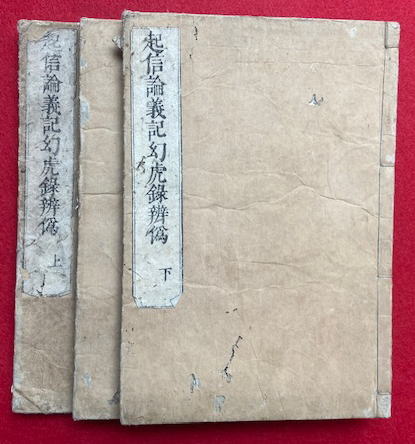 起信論義記幻虎錄辨僞
下
起信論義記幻虎錄辨僞
上